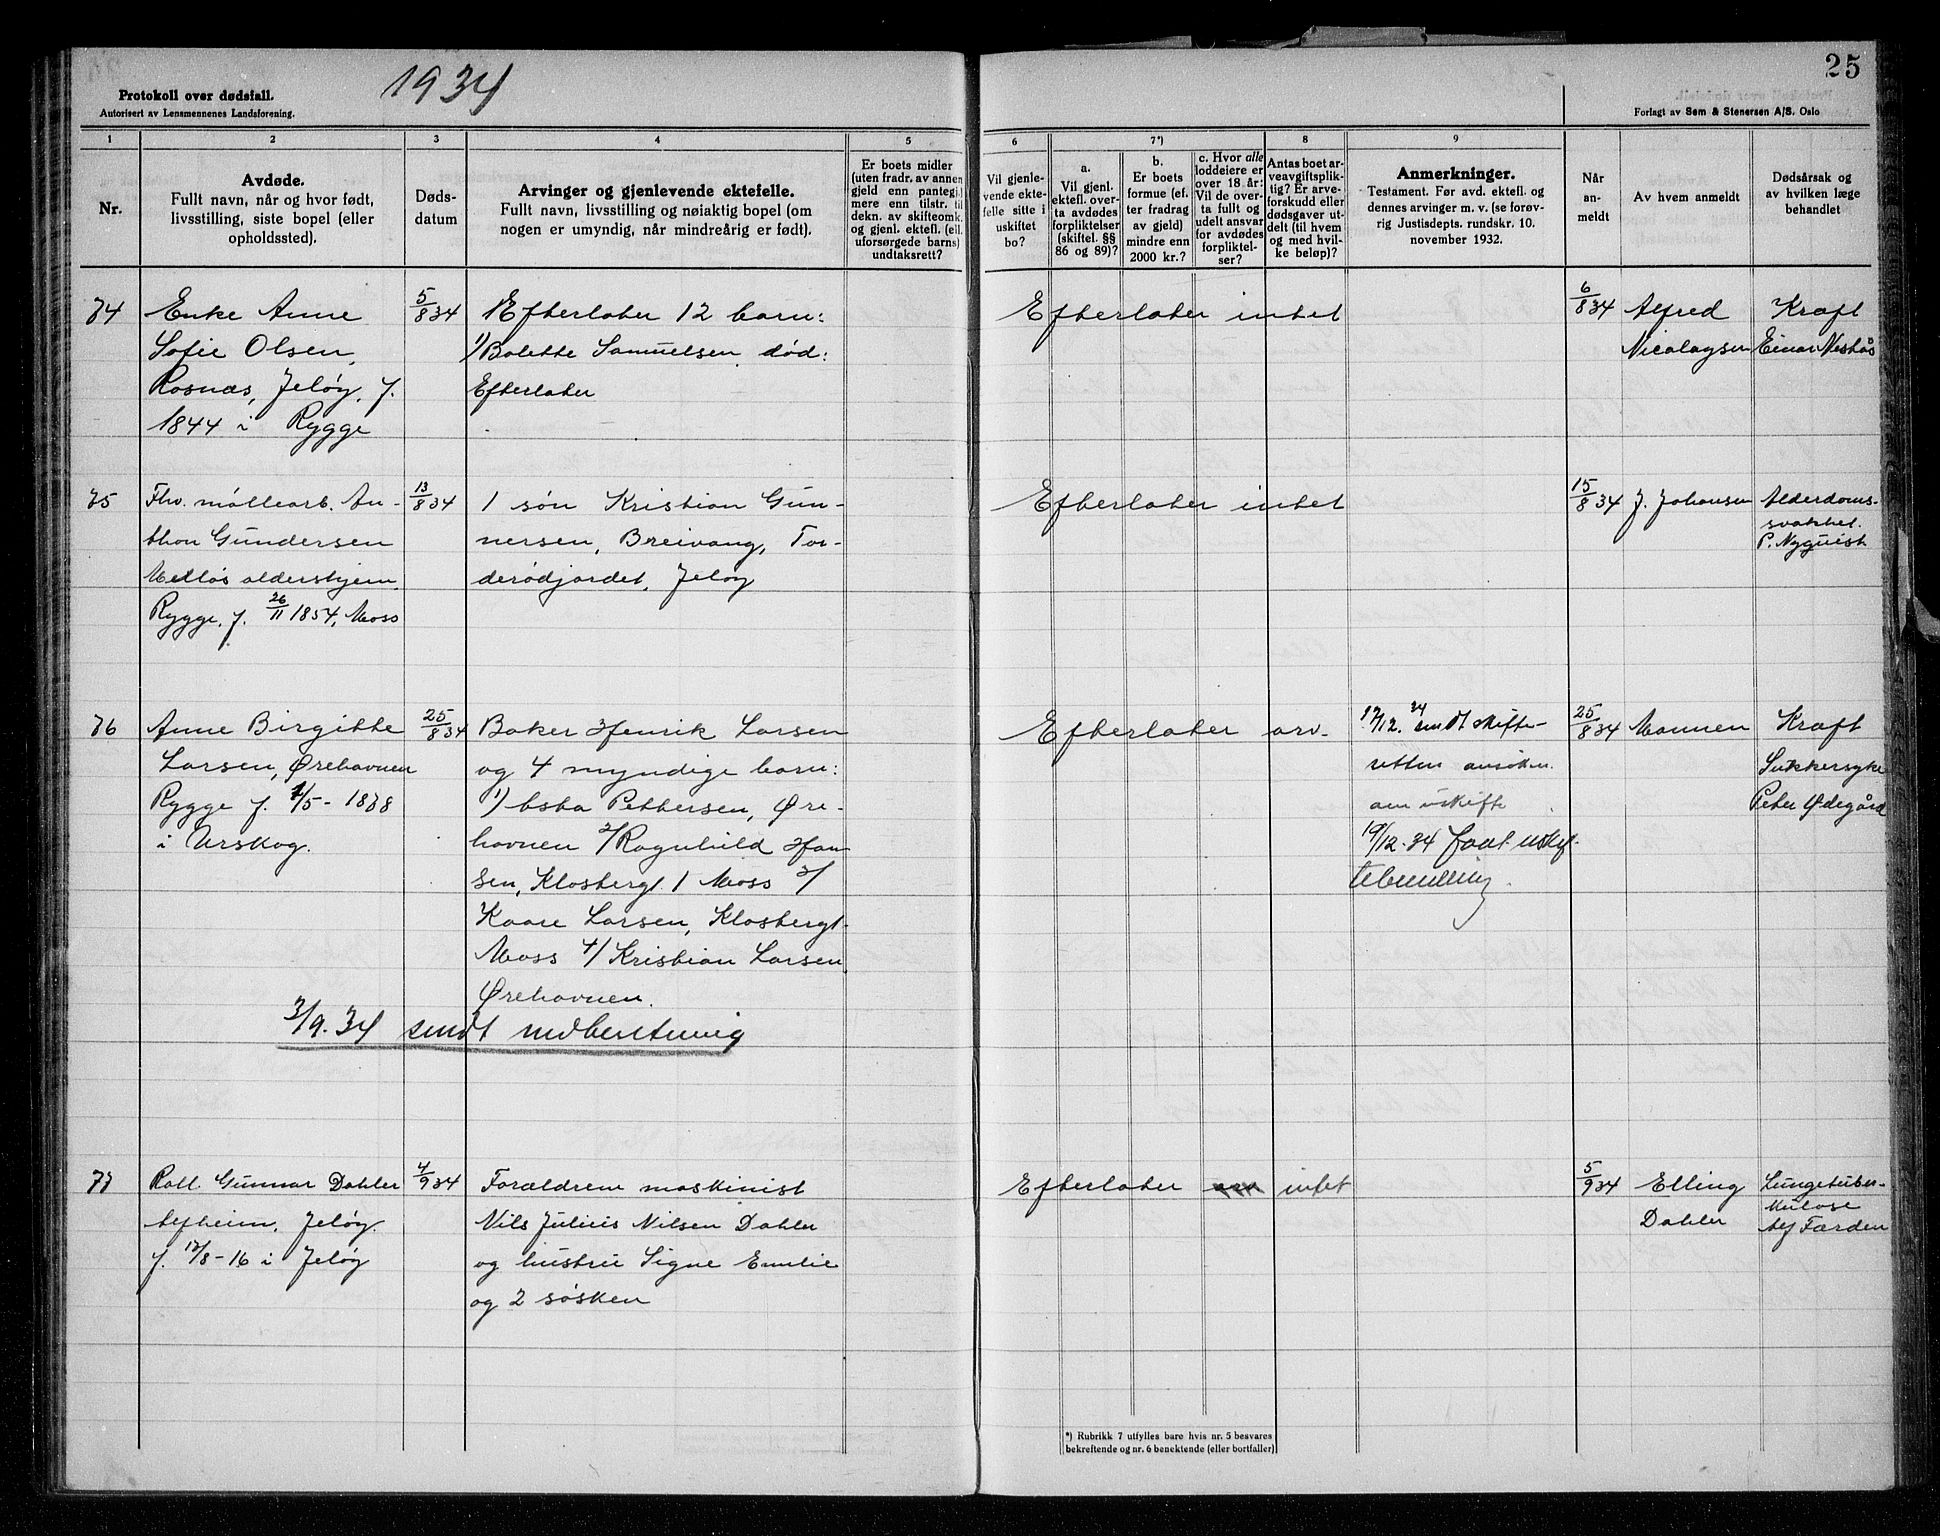 Protokoll over dødsfall.
Autorisert av Lensmennenes Landsforening.
1934
25
Forlagt av Sem & Stenersen A/S. Oslo
1
2
3
4
5
6
7*)
8
9
Nr.
Avdøde.
Fullt navn, når og hvor født,
livsstilling, siste bopel (eller
opholdssted).
Døds-
datum
Arvinger og gjenlevende ektefelle.
Fullt navn, livsstilling og nøiaktig bopel (om
nogen er umyndig, når mindreårig er født).
Er boets midler
(uten fradr. av annen
gjeld enn pantegj.)
mere enn tilstr. til
dekn. av skifteomk.
og gjenl. ektef. (ell.
uforsørgede barns)
undtaksrett?
Vil gjenle-
vende ekte-
felle sitte i
uskiftet
bo?
a.
Vil gjenl.
ektefl. over-
ta avdødes
forpliktelser
(skiftel. §§
86 og 89)?
b.
Er boets
formue (ef-
ter fradrag
av gjeld)
mindre enn
2000 kr.?
c. Hvor alle
loddeiere er
over 18 år:
Vil de over-
ta fullt og
udelt ansvar
for avdødes
forpliktel-
ser?
Antas boet ar-
veavgiftsplik-
tig? Er arve-
forskudd eller
dødsgaver ut-
delt (til hvem
og med hvil-
ke beløp)?
Anmerkninger.
Testament. Før avd. ektefl. og
dennes arvinger m. v. (se forøv-
rig Justisdepts. rundskr. 10.
november 1932.
Når
an-
meldt
Av hvem anmeldt
Dødsårsak og
av hvilken læge
behandlet
74
Enke Anne
Sofie Olsen,
Rosnæs, Jeløy, f.
1844 i Rygge
5/8 34
Efterlater 12 barn:
1) Bolette Samuelsen død:
Efterlater
Efterlater intet
6/8 34
Alfred
Nicolaysen
Kræft
Einar Nestås
75
Fhv. møllearb. An-
thon Gundersen
Melløs aldershjem
Rygge, f. 26/11 1854, Moss
13/8 34
1 søn Kristian Gun-
nersen, Breivang, Tor-
derødjordet, Jeløy
Efterlater intet
15/8 34
J. Johansen
Alderdoms-
svakhet.
P. Nyquist
76
Anne Birgitte
Larsen, Ørehavnen
Rygge f. 1/5 - 1868
i Urskog.
25/8 34
Baker Henrik Larsen
og 4 myndige barn:
1) Asta Pettersen, Øre-
havnen 2/ Ragnhild Han-
sen, Klosbergt. 1 Moss 3/
Kaare Larsen, Klosbergt.
Moss 4/ Kristian Larsen
Ørehavnen.
Efterlater arv.
17/12. 34 sendt skifte-
retten ansøkn.
om uskifte
19/12. 34 faat uskif-
tebevilling.
25/8 34
Mannen
Kræft
Sukkersyke
Peter Ødegård
3/9. 34 sendt nedberetning
77
Rolf Gunnar Dahler
Alfheim, Jeløy.
f. 12/8 - 16 i Jeløy
4/9 34
Forældrene maskinist
Nils Julius Nilsen Dahler
og hustru Signe Emilie
og 2 søsken
Efterlater arv intet
5/9 34
Elling
Dahler
Lungetuber-
kulose
Alf Færden
*) Rubrikk 7 utfylles bare hvis nr. 5 besvares
bekreftende og nr. 6 benektende (eller bortfaller)